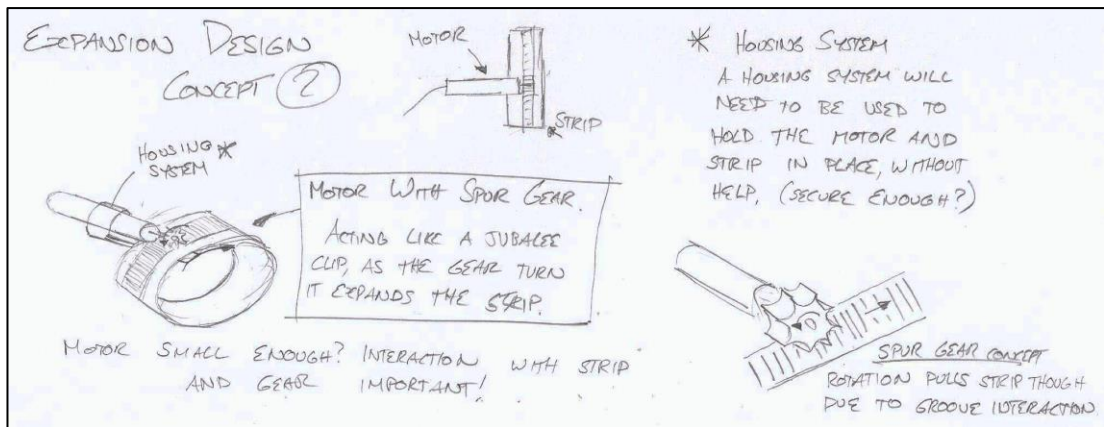 EXPANSION DESIGN
CONCEPT 2
MOTOR
STRIP
HOUSING *
SYSTEM
MOTOR WITH SPUR GEAR.
ACTING LIKE A JUBALEE
CLIP, AS THE GEAR TURN
IT EXPANDS THE STRIP.
MOTOR SMALL ENOUGH? INTERACTION WITH STRIP
AND GEAR IMPORTANT!
* HOUSING SYSTEM
A HOUSING SYSTEM WILL
NEED TO BE USED TO
HOLD THE MOTOR AND
STRIP IN PLACE, WITHOUT
HELP, (SECURE ENOUGH?)
SPUR GEAR CONCEPT
ROTATION PULLS STRIP THOUGH
DUE TO GROOVE INTERACTION.